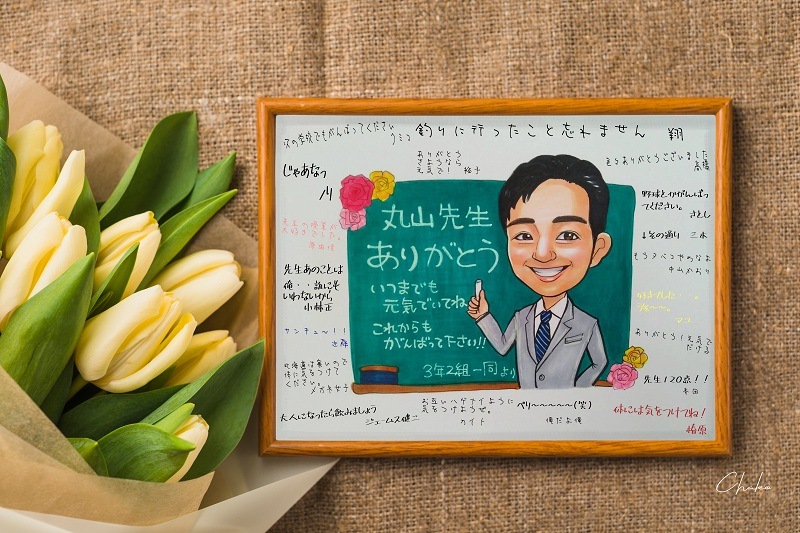 次の学校でもがんばってください
クミコ
釣りに行ったこと忘れません 翔
ありがとう
さようなら
元気で! 裕子
色々ありがとうございました
高橋
じゃあなっ
先生の授業が
大好きでした。
先生あのことは
俺・・誰にも
いわないから
小林正
サンキュー!!
北海道は寒いので
体に気をつけて
ください。
メガネ女子
大人になったら飲みましょう
ジェームス健二
お互いハゲナイように
気をつけようぜ。
カイト
ペリ～～～～～(笑)
俺だよ俺
丸山先生
ありがとう
いつまでも
元気でいてね
これからも
がんばって下さい!!
3年2組一同より
野球とかがんばっ
てください。
さとし
↓その通り 三木
そろヌベコヤのなよ
中山かおり
マコ
ありがとう!元気で
だける
先生120点!!
本田
体には気をつけてね!
椿原
Chako